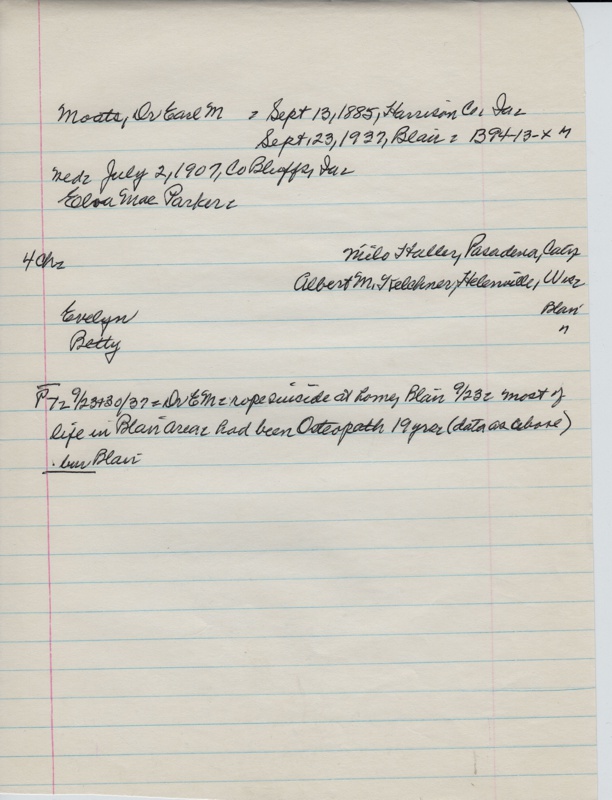 Moats, Dr Earl M = Sept 13, 1885, Harrison Co, Ia=
Sept, 23, 1937, Blair = B94-13-x "
Med= July 2, 1907, Co Bluffs, Ia=
Elva Mae Parker=
4 Ch= Milo Haller, Pasadena, Caly
Albert M. Kelchner, Helenville, Wis=
Evelyn Blair
Betty "
PT= 9/23+30/37 = Dr EM = rope suicide at home, Blair 9/23 = most of
life in Blair area= had been Osteopath 19 yrs= (data as above)
bur Blair